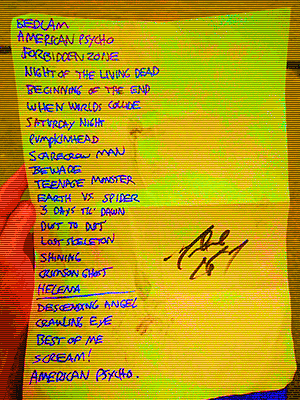 BEDLAM
AMERICAN PSYCHO
FORBIDDEN ZONE
NIGHT OF THE LIVING DEAD
BEGINNING OF THE END
WHEN WORLDS COLLIDE
SATURDAY NIGHT
PUMPKINHEAD
SCARECROW MAN
BEWARE
TEENAGE MONSTER
EARTH VS SPIDER
3 DAYS TIL' DAWN
DUST TO DUST
LOST SKELETON
SHINING
CRIMSON GHOST
HELENA
DESCENDING ANGEL
CRAWLING EYE
BEST OF ME
SCREAM!
AMERICAN PSYCHO.